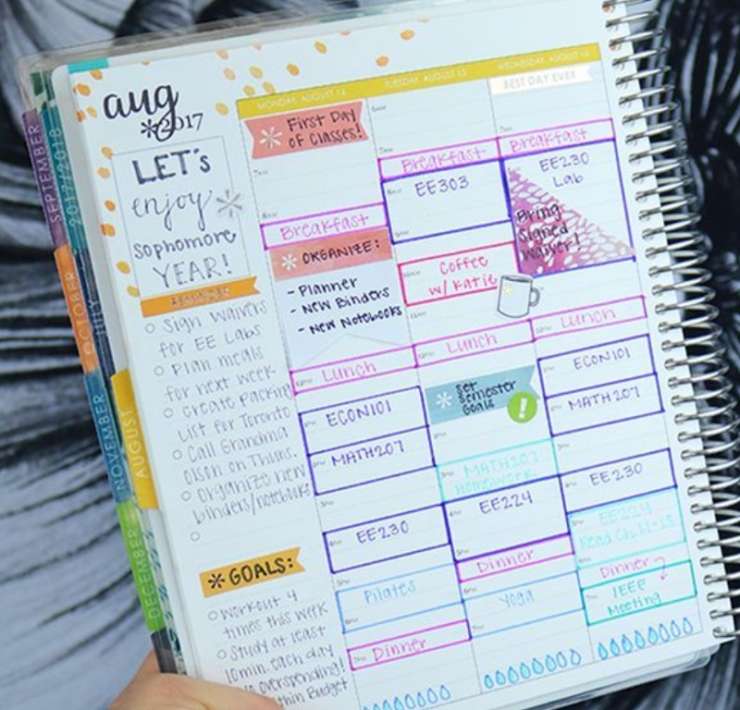 aug
2017
LET'S
enjoy
sophomore
YEAR!
Sign Waivers
for EE Labs
Plan meals
for next week
Create packing
list for Toronto
Call Grandma
Olson on Thurs.
Organized new
binders/notebooks
GOALS:
Workout 4
times this week
Study at least
10min. each day
overspending!
Budget
MONDAY, AUGUST
First Day
of Classes!
Breakfast
ORGANIZE:
- Planner
- New Binders
- New Notebooks
Lunch
ECON101
MATH207
EE230
Pilates
Dinner
TUESDAY, AUGUST
Breakfast
EE303
Coffee
w/ Katie
Lunch
Set
Semester
Goals
!
MATH207
Homework
EE224
Dinner
Yoga
WEDNESDAY, AUGUST
BEST DAY EVER
Breakfast
EE230
Lab
Bring
Signed
Waiver!
Lunch
ECON101
MATH207
EE230
EE224
Read Ch.
Dinner
IEEE
Meeting
SEPTEMBER
2017/2018
OCTOBER
JULY
NOVEMBER
AUGUST
DECEMBER